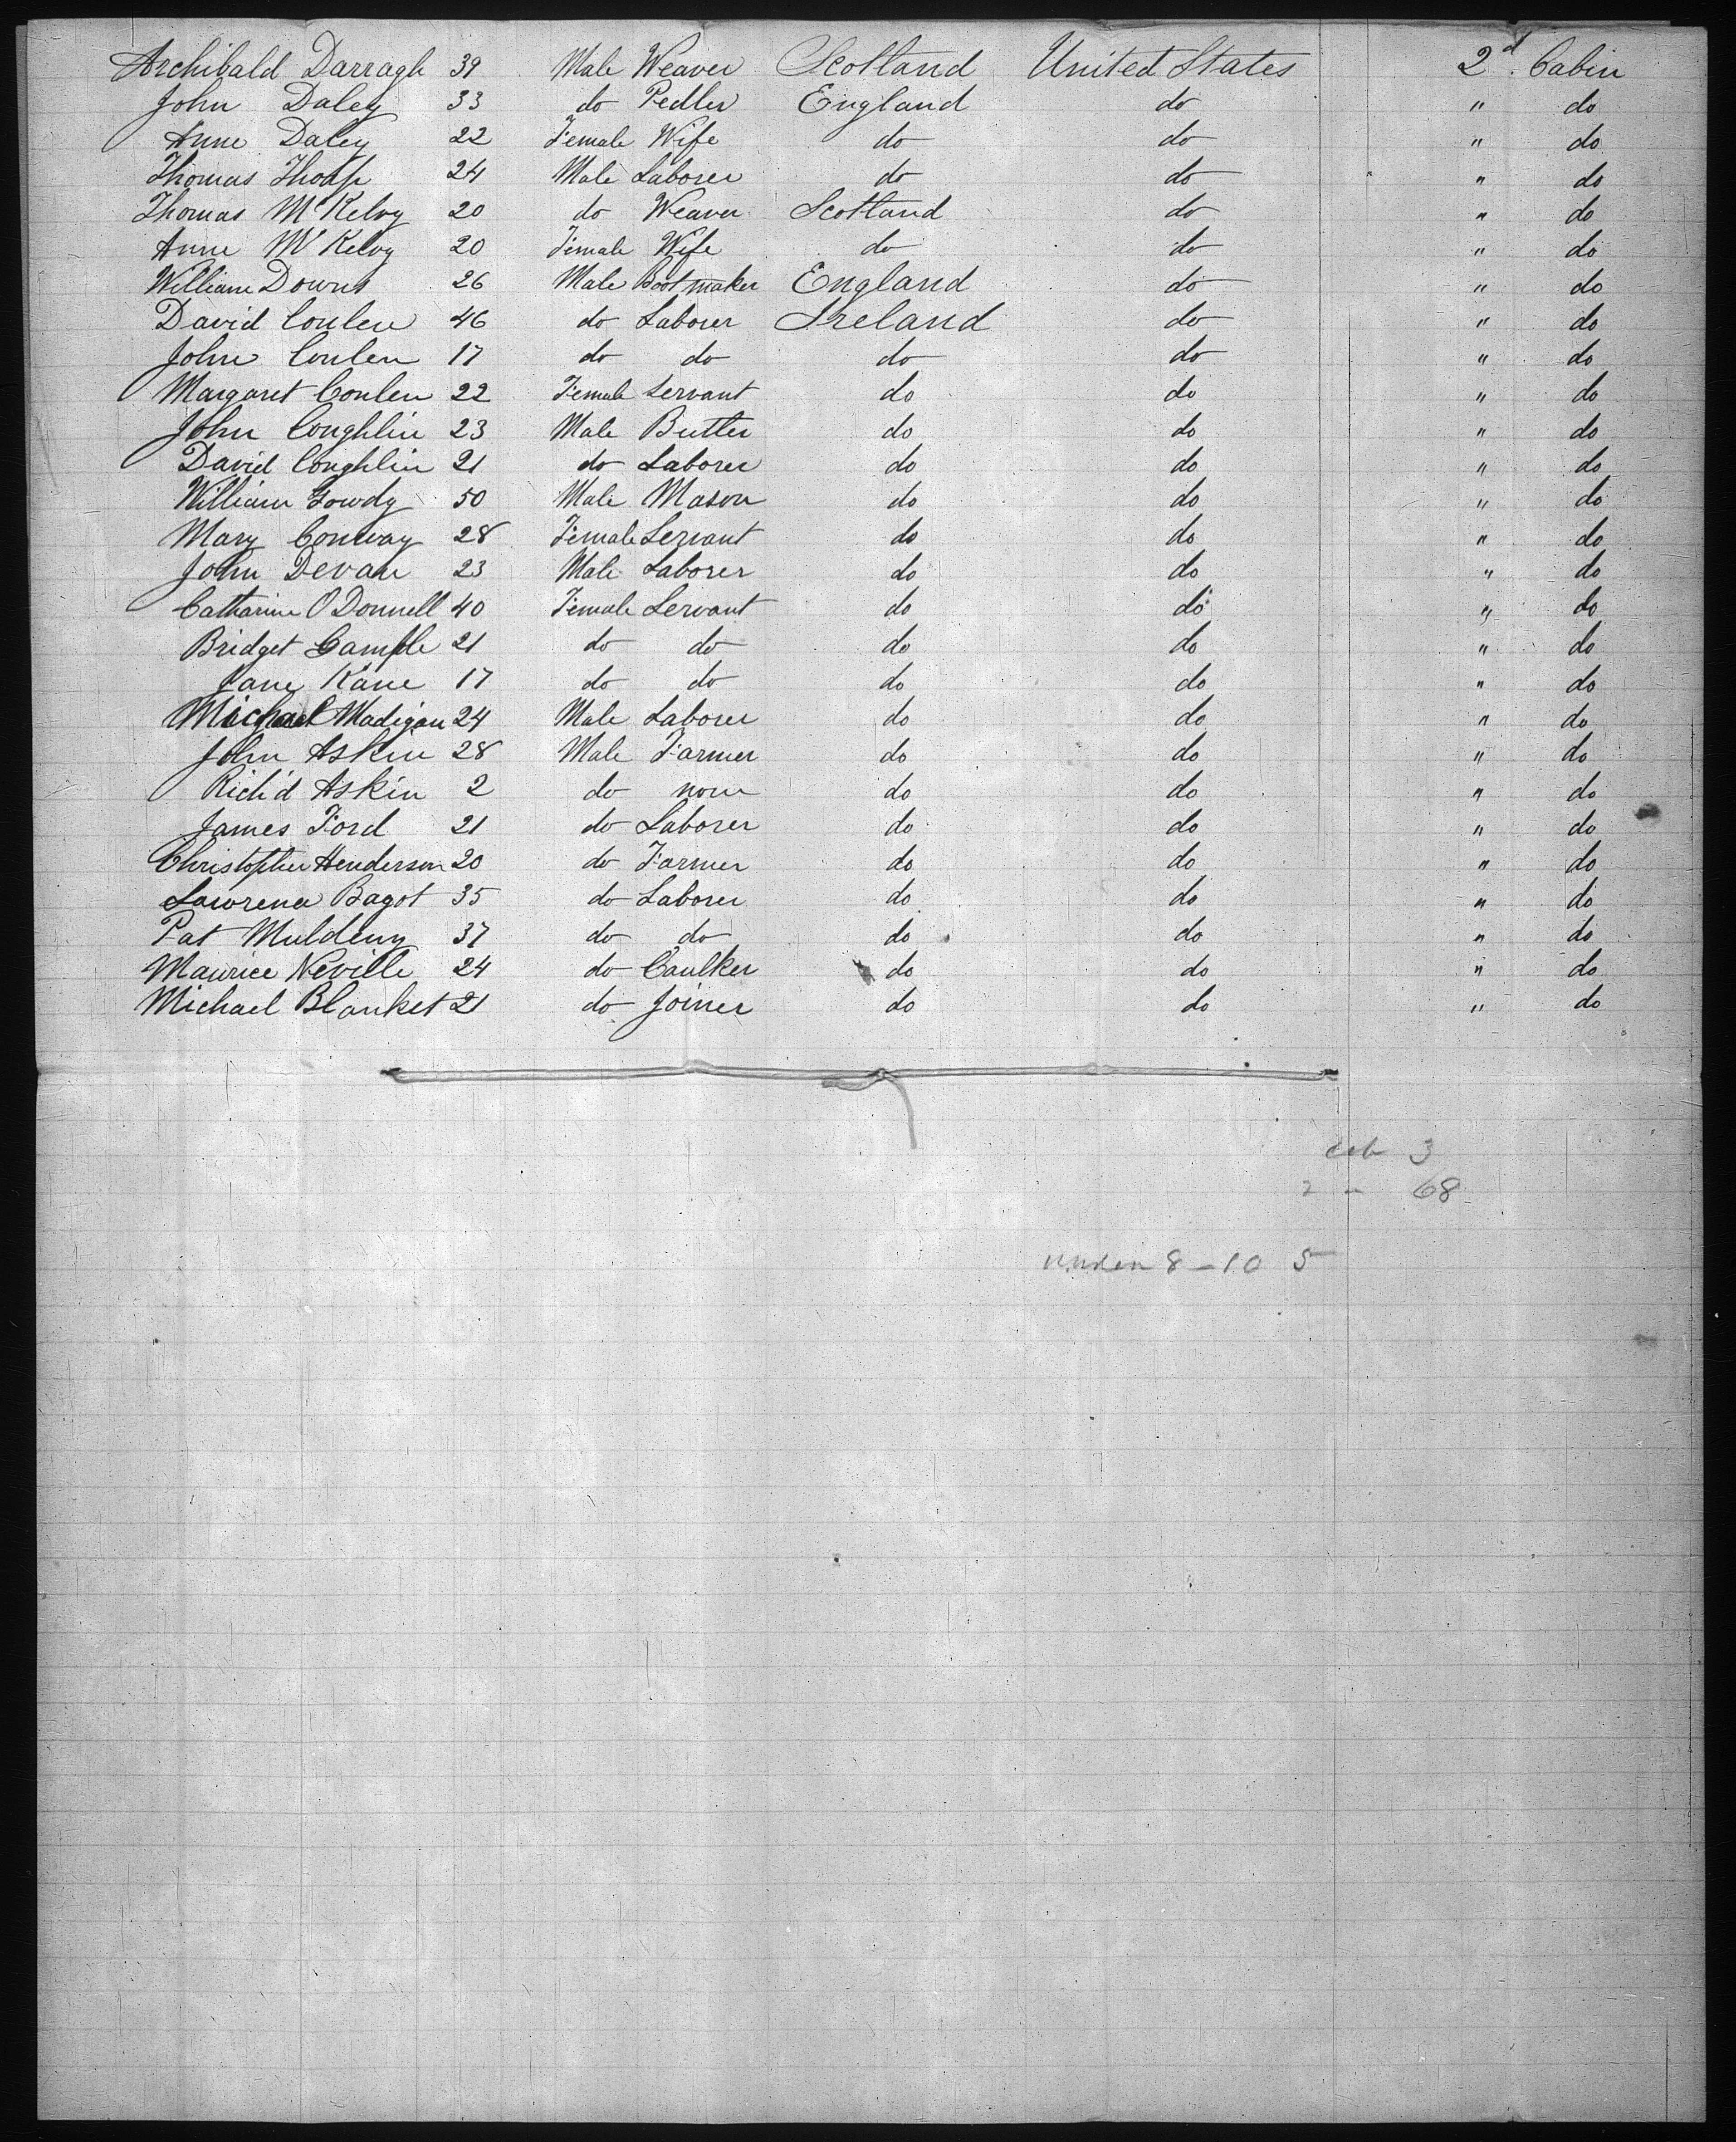 Archibald Darragh 39 Male Weaver Scotland United States 2d. Cabin
John Daley 33 do Pedler England do " do
Anne Daley 22 Female Wife do do " do
Thomas 24 Male Laborer do do " do
Thomas McKelvy 20 do Weaver Scotland do " do
Anne McKelvy 20 Female Wife do do " do
William Downs 26 Male Bootmaker England do " do
David Conlen 46 do Laborer Ireland do " do
John Conlen 17 do do do do " do
Margaret Conlen 22 Female Servant do do " do
John Coughlin 23 Male Butler do do " do
David Coughlin 21 do Laborer do do " do
William Gowdy 50 Male Mason do do " do
Mary Conway 28 Female Servant do do " do
John Devan 23 Male Laborer do do " do
Catharine O'Donnell 40 Female Servant do do " do
Bridget Gample 21 do do do do " do
Jane Kane 17 do do do do " do
Michael Madigan 24 Male Laborer do do " do
John Askin 28 Male Farmer do do " do
Rich'd Askin 2 do none do do " do
James Ford 21 do Laborer do do " do
Christopher Henderson 20 do Farmer do do " do
Lawrence Bagot 35 do Laborer do do " do
Pat Muldeny 37 do do do do " do
Maurice Neville 24 do Caulker do do " do
Michael Blanket 21 do Joiner do do " do
3
2 - 68
under 8 - 10 5